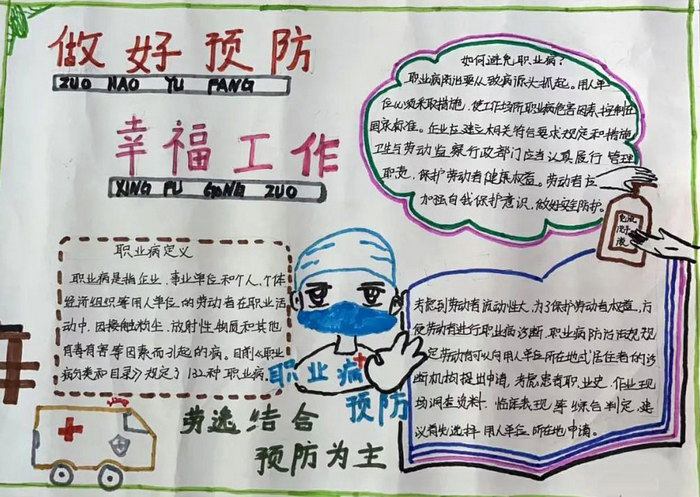 做好预防
ZUO HAO YU FANG
幸福工作
XING FU GONG ZUO
如何避免职业病?
职业病防治要从致病源头抓起。用人单
位必须采取措施,使工作场所职业病危害因素控制在
国家标准。企业应建立相关符合要求规定和措施
卫生与劳动监察行政部门应当认真履行管理
职责,保护劳动者健康权益。劳动者应
加强自我保护意识,做好安全防护。
免洗
洗手
液
职业病定义
职业病是指企业、事业单位和个人、个体
经济组织等用人单位的劳动者在职业活
动中,因接触粉尘、放射性物质和其他
有毒有害等因素而引起的病。目前《职业
病分类和目录》规定了132种职业病。
职业病
预防
考虑到劳动者流动性大,为了保护劳动者权益,方
便劳动者进行职业病诊断,职业病防治法规规
定劳动者可以向用人单位所在地或居住者的诊
断机构提出申请。考虑患有职业史、作业现
场调查资料、临床表现等综合判定,建
议首先选择用人单位所在地申请。
劳逸结合
预防为主